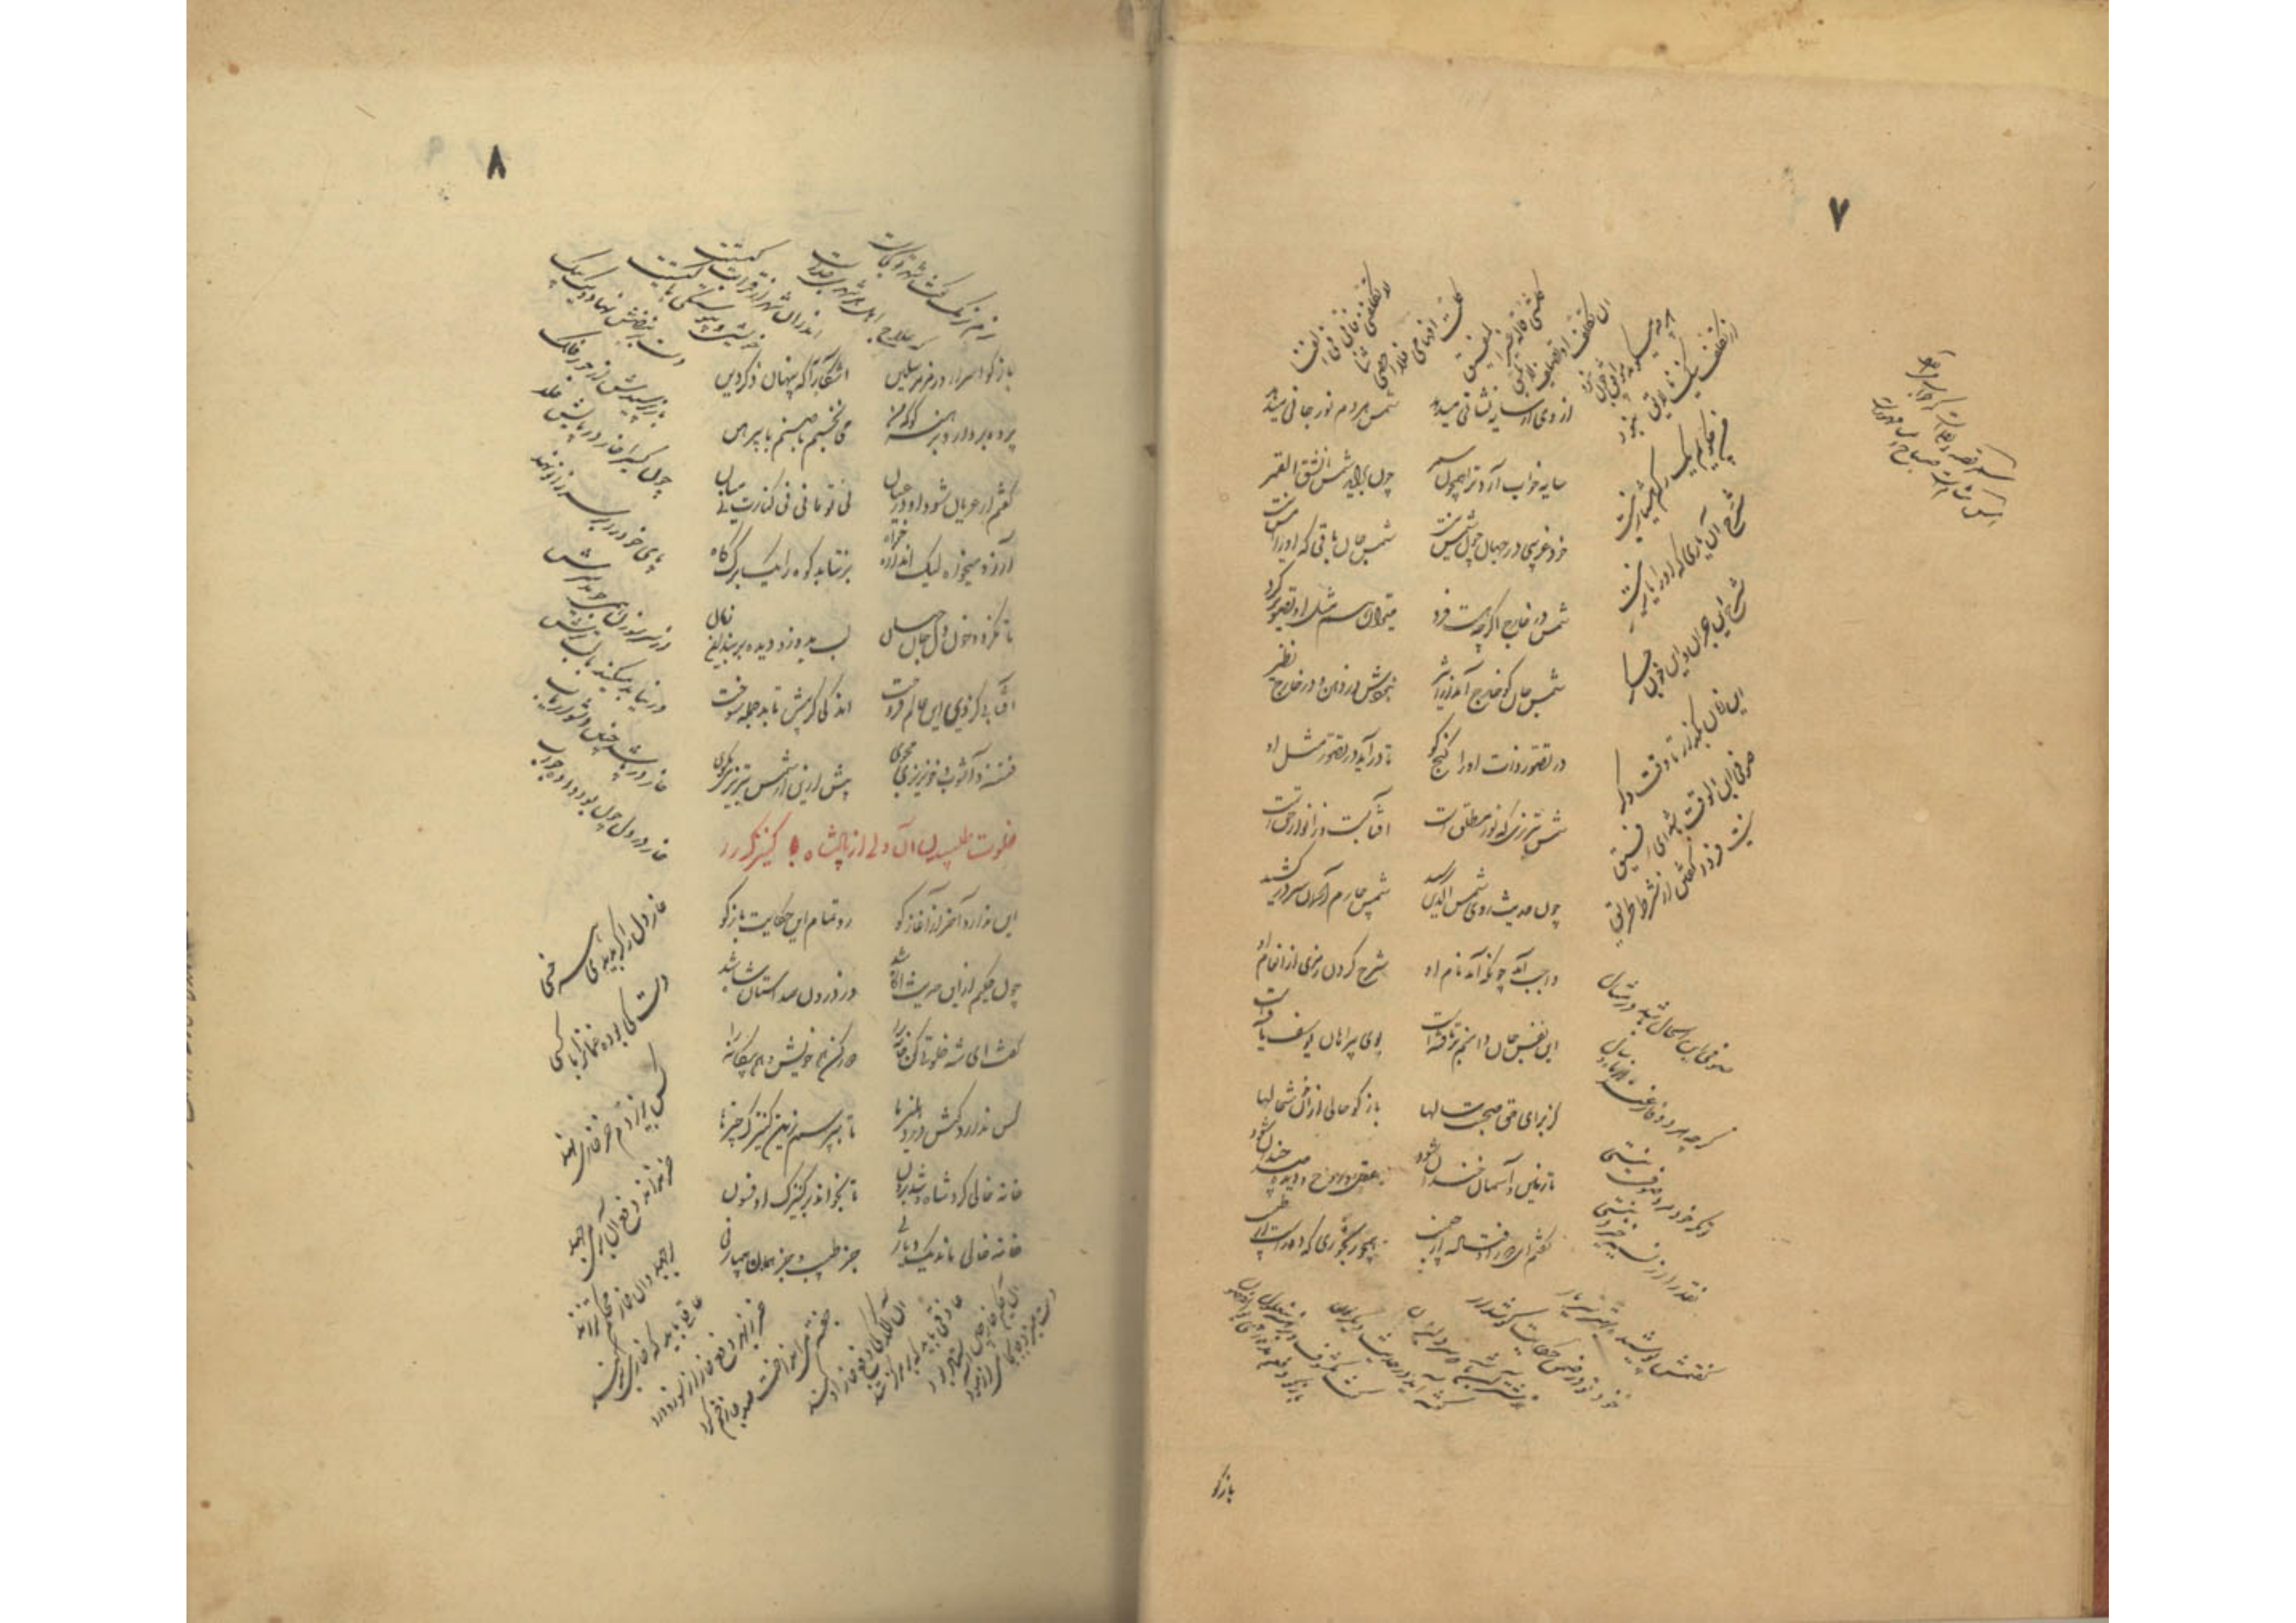 ۷
از وی ار سایه نشانی میدهد شمس هر دم نور جانی میدهد
سایه خواب آرد ترا همچون سمر چون برآید شمس انشق القمر
خود غریبی در جهان چون شمس نیست شمس جان باقی که او را امس نیست
شمس در خارج اگرچه هست فرد میتوان هم مثل او تصویر کرد
شمس جان کو خارج آمد از اثیر نبودش در ذهن و در خارج نظیر
در تصور ذات او را گنج کو تا درآید در تصور مثل او
شمس تبریزی که نور مطلق است آفتابست و ز انوار حق است
چون حدیث روی شمس الدین رسید شمس چارم آسمان سر در کشید
واجب آمد چونکه آمد نام او شرح کردن رمزی از انعام او
این نفس جان دامنم برتافته است بوی پیراهان یوسف یافته است
کز برای حق صحبت سالها باز گو حالی از آن خوش حالها
تا زمین و آسمان خندان شود عقل و روح و دیده صد چندان شود
گفتم ای دور اوفتاده از حبیب همچو رنجوری که دور است از طبیب
لا تکلفنی فانی فی الفنا
کلت افهامی فلا احصی ثنا
کل شیء قاله غیر المفیق
ان تکلف او تصلف لا یلیق
هر چه میگوید موافق چون نبود
چون تکلف نیک نالایق نمود
من چه گویم یک رگم هشیار نیست
شرح آن یاری که او را یار نیست
شرح این هجران و این خون جگر
این زمان بگذار تا وقت دگر
صوفی ابن الوقت باشد ای رفیق
نیست فردا گفتن از شرط طریق
صوفی ابن الحال باشد در مثال
گرچه هر دو فارغند از ماه و سال
تو مگر خود مرد صوفی نیستی
نقد را از نسیه خیزد نیستی
گفتمش پوشیده خوشتر سر یار
خود تو در ضمن حکایت گوش دار
خوشتر آن باشد که سر دلبران
گفته آید در حدیث دیگران
گفت مکشوف و برهنه بی غلول
بازگو
۸
باز گو اسرار و رمز مرسلین آشکارا به که پنهان ذکر دین
پرده بردار و برهنه گو که من می نخسبم با صنم با پیرهن
گفتم ار عریان شود او در عیان نی تو مانی نی کنارت نی میان
آرزو میخواه لیک اندازه خواه برنتابد کوه را یک برگ کاه
تا نگردد خون دل جان جهان لب بدوز و دیده بربند این زمان
آفتابی کز وی این عالم فروخت اندکی گر پیش تابد جمله سوخت
فتنه و آشوب و خونریزی مجوی بیش ازین از شمس تبریزی مگوی
خلوت طلبیدن آن ولی از پادشاه با کنیزک
این ندارد آخر از آغاز گو رو تمام این حکایت باز گو
چون حکیم از این حدیث آگاه شد وز درون همداستان شاه شد
گفت ای شه خلوتی کن خانه را دور کن هم خویش و هم بیگانه را
کس ندارد گوش در دهلیزها تا بپرسم زین کنیزک چیزها
خانه خالی کرد شاه و شد برون تا بخواند بر کنیزک او فسون
خانه خالی ماند و یک دیار نی جز طبیب و جز همان بیمار نی
نرم نرمک گفت شهر تو کجاست
که علاج اهل هر شهری جداست
اندر آن شهر از قرابت کیستت
خویشی و پیوستگی با چیستت
دست بر نبضش نهاد و یک بیک
باز میپرسید از جور فلک
چون کسی را خار در پایش خلد
پای خود را بر سر زانو نهد
از سر سوزن همی جوید سرش
ور نیابد میکند با لب ترش
خار در پا شد چنین دشوار یاب
خار در دل چون بود وا ده جواب
خار دل را گر بدیدی هر خسی
دست کی بودی غمان را بر کسی
کس بزیر دم خر خاری نهد
خر نداند دفع آن بر می جهد
بر جهد وان خار محکم تر زند
عاقلی باید که خاری بر کند
خر ز بهر دفع خار از سوز و درد
جفته می انداخت صد جا زخم کرد